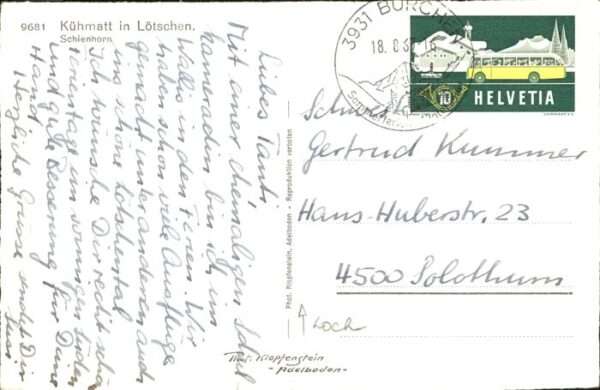 9681 Kühmatt in Lötschen.
Schienhorn
Liebes Tanti,
Mit einer ehemaligen Schul
kameradin bin ich im
Wallis in den Ferien. Wir
haben schon viel Ausflüge
gemacht unter anderem auch
ins schöne Lötschental
Ich wünsche Dir recht schöne
Ferientage im sonnigen Süden
und gute Besserung für Deine
Hand.
Herzliche Grüsse sendet Dir
Phot. Klopfenstein, Adelboden - Reproduktion verboten
3931 BÜRCHEN
18. 8.
10
HELVETIA
Gertrud Kummer
Hans-Huberstr. 23
4500 Solothurn
↑
Loch
Phot. Klopfenstein
- Adelboden -